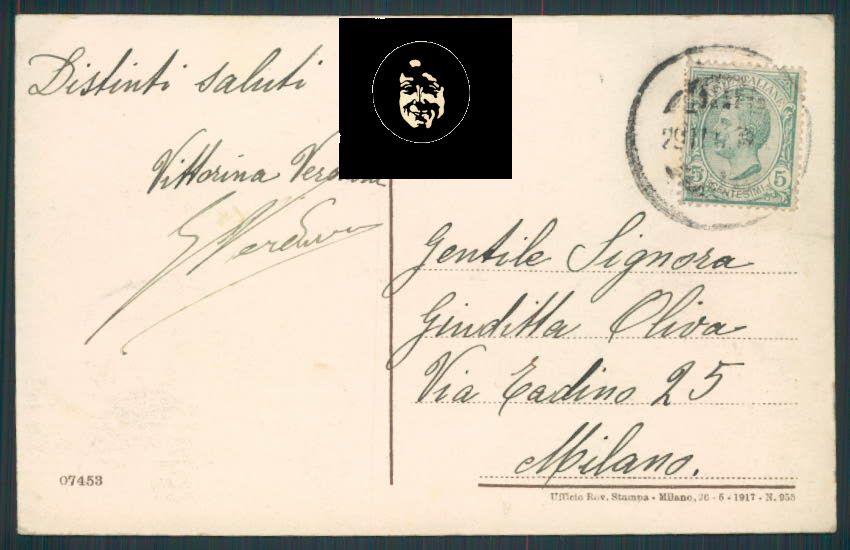 Distinti saluti
Vittorina
Gentile Signora
Giuditta Oliva
Via Eadino 25
Milano.
07453
Ufficio Rev. Stampa - Milano, 26 - 6 - 1917 - N. 955
POSTE ITALIANE
5 CENTESIMI 5